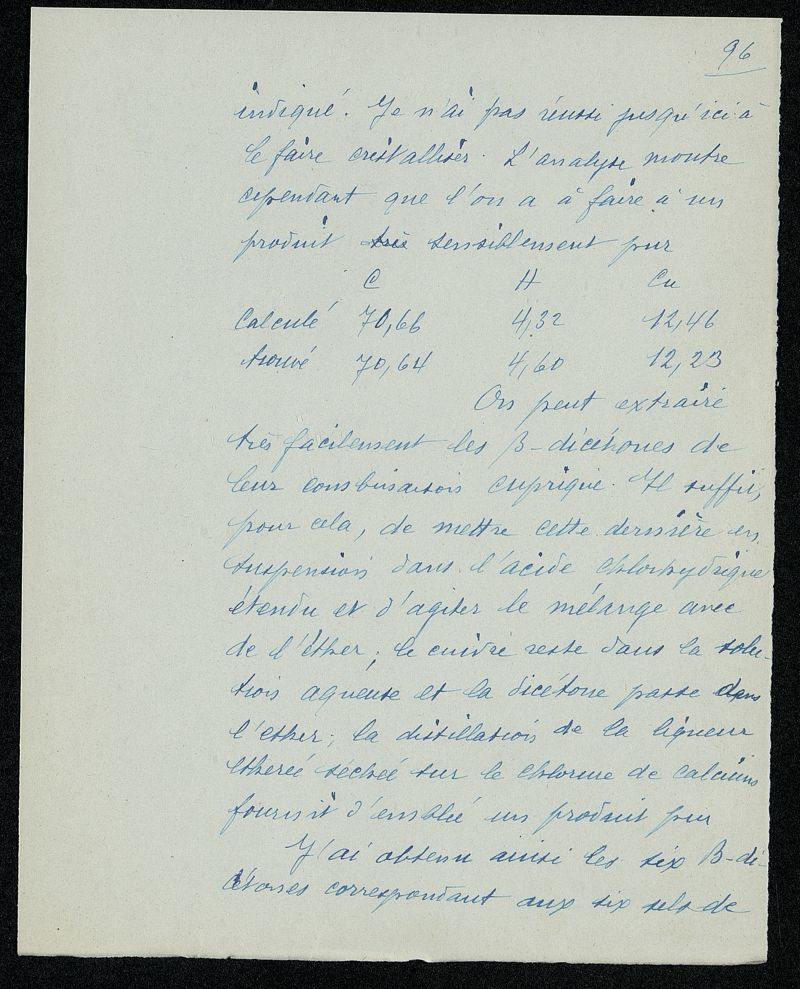 96
indiqué. Je n'ai pas réussi jusqu'ici à
le faire cristalliser. L'analyse montre
cependant que l'on a à faire à un
produit très sensiblement pur
C H Cu
Calculé 70,66 4,32 12,46
trouvé 70,64 4,60 12,23
On peut extraire
très facilement les β-dicétones de
leur combinaison cuprique. Il suffit,
pour cela, de mettre cette dernière en
suspension dans l'acide chlorhydrique
étendu et d'agiter le mélange avec
de l'éther; le cuivre reste dans la solu-
tion aqueuse et la dicétone passe dans
l'ether; la distillation de la liqueur
ethereé sécheé sur le chlorure de calcium
fournit d'emblée un produit pur
J'ai obtenu ainsi les six β-di-
cétones correspondant aux six sels de